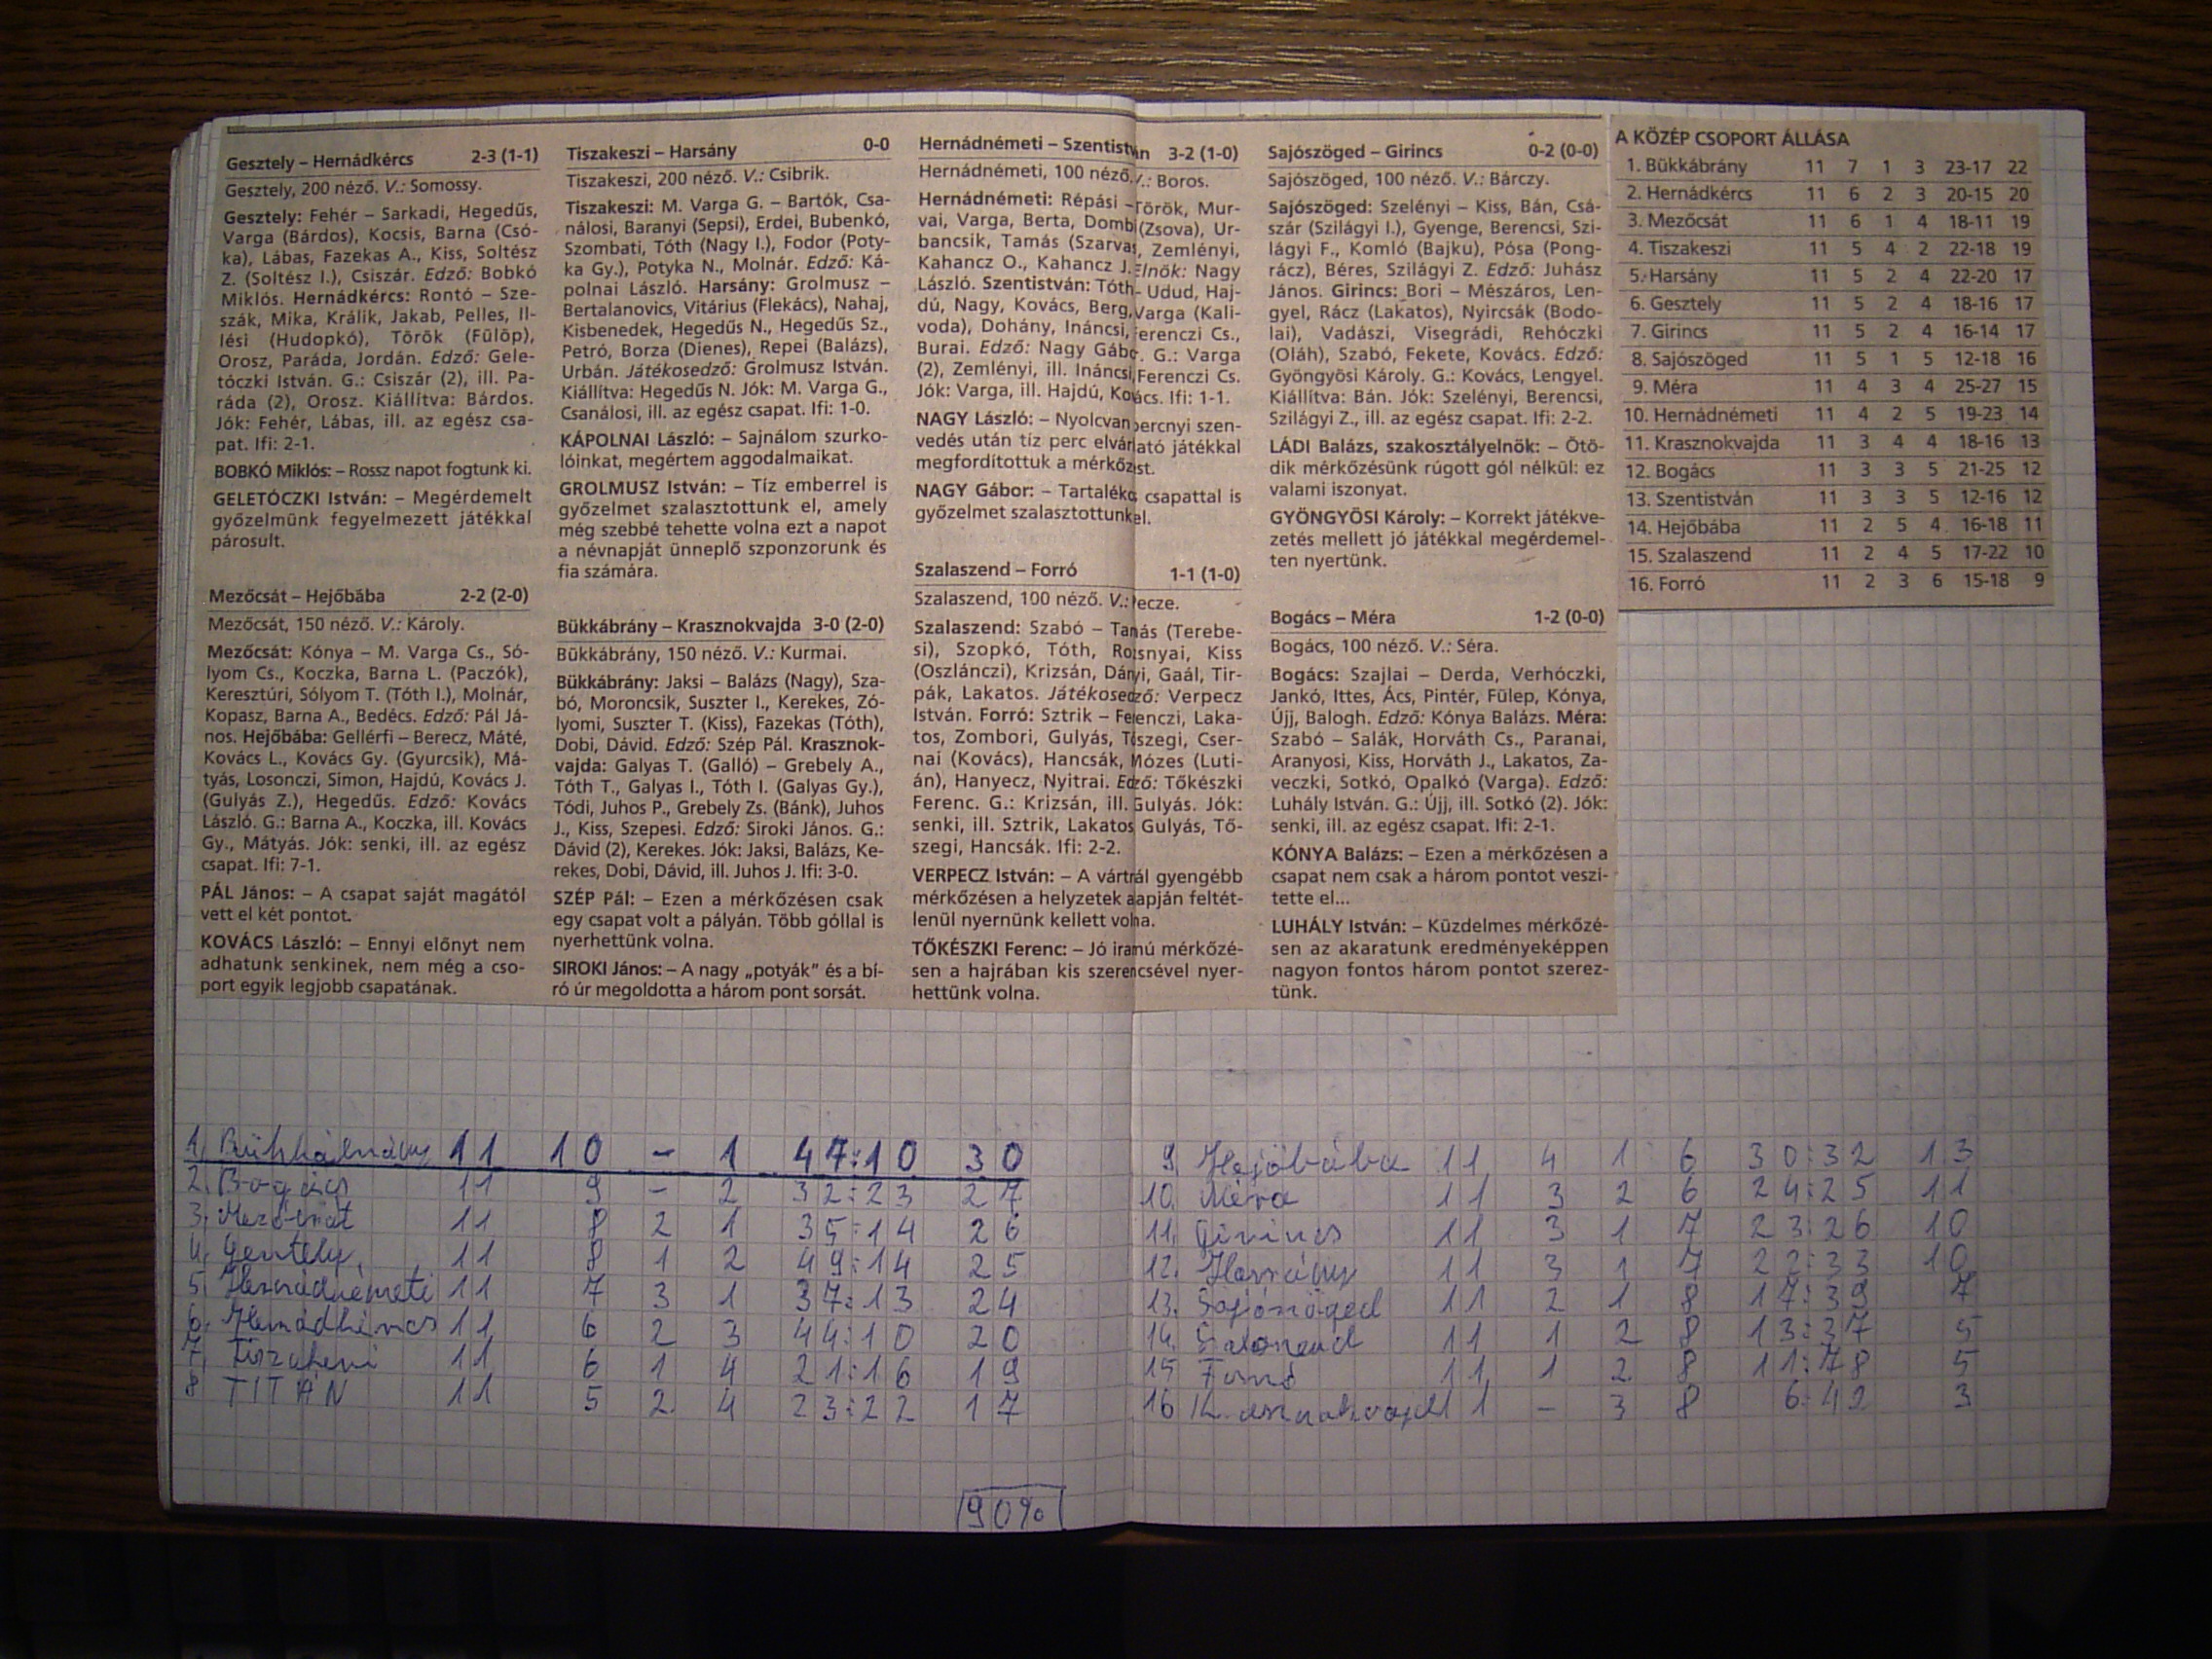 Gesztely – Hernádkércs 2-3 (1-1)
Gesztely, 200 néző. V.: Somossy.
Gesztely: Fehér – Sarkadi, Hegedűs,
Varga (Bárdos), Kocsis, Barna (Csó-
ka), Lábas, Fazekas A., Kiss, Soltész
Z. (Soltész I.), Csiszár. Edző: Bobkó
Miklós. Hernádkércs: Rontó – Sze-
szák, Mika, Králik, Jakab, Pelles, Il-
lési (Hudopkó), Török (Fülöp),
Orosz, Paráda, Jordán. Edző: Gele-
tóczki István. G.: Csiszár (2), ill. Pa-
ráda (2), Orosz. Kiállítva: Bárdos.
Jók: Fehér, Lábas, ill. az egész csa-
pat. Ifi: 2-1.
BOBKÓ Miklós: – Rossz napot fogtunk ki.
GELETÓCZKI István: – Megérdemelt
győzelmünk fegyelmezett játékkal
párosult.
Mezőcsát – Hejőbába 2-2 (2-0)
Mezőcsát, 150 néző. V.: Károly.
Mezőcsát: Kónya – M. Varga Cs., Só-
lyom Cs., Koczka, Barna L. (Paczók),
Keresztúri, Sólyom T. (Tóth I.), Molnár,
Kopasz, Barna A., Bedécs. Edző: Pál Já-
nos. Hejőbába: Gellérfi – Berecz, Máté,
Kovács L., Kovács Gy. (Gyurcsik), Má-
tyás, Losonczi, Simon, Hajdú, Kovács J.
(Gulyás Z.), Hegedűs. Edző: Kovács
László. G.: Barna A., Koczka, ill. Kovács
Gy., Mátyás. Jók: senki, ill. az egész
csapat. Ifi: 7-1.
PÁL János: – A csapat saját magától
vett el két pontot.
KOVÁCS László: – Ennyi előnyt nem
adhatunk senkinek, nem még a cso-
port egyik legjobb csapatának.
Tiszakeszi – Harsány 0-0
Tiszakeszi, 200 néző. V.: Csibrik.
Tiszakeszi: M. Varga G. – Bartók, Csa-
nálosi, Baranyi (Sepsi), Erdei, Bubenkó,
Szombati, Tóth (Nagy I.), Fodor (Poty-
ka Gy.), Potyka N., Molnár. Edző: Ká-
polnai László. Harsány: Grolmusz –
Bertalanovics, Vitárius (Flekács), Nahaj,
Kisbenedek, Hegedűs N., Hegedűs Sz.,
Petró, Borza (Dienes), Repei (Balázs),
Urbán. Játékosedző: Grolmusz István.
Kiállítva: Hegedűs N. Jók: M. Varga G.,
Csanálosi, ill. az egész csapat. Ifi: 1-0.
KÁPOLNAI László: – Sajnálom szurko-
lóinkat, megértem aggodalmaikat.
GROLMUSZ István: – Tíz emberrel is
győzelmet szalasztottunk el, amely
még szebbé tehette volna ezt a napot
a névnapját ünneplő szponzorunk és
fia számára.
Bükkábrány – Krasznokvajda 3-0 (2-0)
Bükkábrány, 150 néző. V.: Kurmai.
Bükkábrány: Jaksi – Balázs (Nagy), Sza-
bó, Moroncsik, Suszter I., Kerekes, Zó-
lyomi, Suszter T. (Kiss), Fazekas (Tóth),
Dobi, Dávid. Edző: Szép Pál. Krasznok-
vajda: Galyas T. (Galló) – Grebely A.,
Tóth T., Galyas I., Tóth I. (Galyas Gy.),
Tódi, Juhos P., Grebely Zs. (Bánk), Juhos
J., Kiss, Szepesi. Edző: Siroki János. G.:
Dávid (2), Kerekes. Jók: Jaksi, Balázs, Ke-
rekes, Dobi, Dávid, ill. Juhos J. Ifi: 3-0.
SZÉP Pál: – Ezen a mérkőzésen csak
egy csapat volt a pályán. Több góllal is
nyerhettünk volna.
SIROKI János: – A nagy „potyák” és a bí-
ró úr megoldotta a három pont sorsát.
Hernádnémeti – Szentistván 3-2 (1-0)
Hernádnémeti, 100 néző. V.: Boros.
Hernádnémeti: Répási – Török, Mur-
vai, Varga, Berta, Domb (Zsova), Ur-
bancsik, Tamás (Szarvas, Zemlényi,
Kahancz O., Kahancz J. Elnök: Nagy
László. Szentistván: Tóth – Udud, Haj-
dú, Nagy, Kovács, Berg, Varga (Kali-
voda), Dohány, Ináncsi, Ferenczi Cs.,
Burai. Edző: Nagy Gábor. G.: Varga
(2), Zemlényi, ill. Ináncsi, Ferenczi Cs.
Jók: Varga, ill. Hajdú, Kovács. Ifi: 1-1.
NAGY László: – Nyolcvan percnyi szen-
vedés után tíz perc elvárható játékkal
megfordítottuk a mérkőzést.
NAGY Gábor: – Tartalékos csapattal is
győzelmet szalasztottunk el.
Szalaszend – Forró 1-1 (1-0)
Szalaszend, 100 néző. V.: Vecze.
Szalaszend: Szabó – Tamás (Terebe-
si), Szopkó, Tóth, Rozsnyai, Kiss
(Oszlánczi), Krizsán, Dányi, Gaál, Tir-
pák, Lakatos. Játékosedző: Verpecz
István. Forró: Sztrik – Ferenczi, Laka-
tos, Zombori, Gulyás, Tőszegi, Cser-
nai (Kovács), Hancsák, Mózes (Luti-
án), Hanyecz, Nyitrai. Edző: Tőkészki
Ferenc. G.: Krizsán, ill. Gulyás. Jók:
senki, ill. Sztrik, Lakatos Gulyás, Tő-
szegi, Hancsák. Ifi: 2-2.
VERPECZ István: – A vártnál gyengébb
mérkőzésen a helyzetek alapján feltét-
lenül nyernünk kellett volna.
TŐKÉSZKI Ferenc: – Jó iramú mérkőzé-
sen a hajrában kis szerencsével nyer-
hettünk volna.
Sajószöged – Girincs 0-2 (0-0)
Sajószöged, 100 néző. V.: Bárczy.
Sajószöged: Szelényi – Kiss, Bán, Csá-
szár (Szilágyi I.), Gyenge, Berencsi, Szi-
lágyi F., Komló (Bajku), Pósa (Pong-
rácz), Béres, Szilágyi Z. Edző: Juhász
János. Girincs: Bori – Mészáros, Len-
gyel, Rácz (Lakatos), Nyircsák (Bodo-
lai), Vadászi, Visegrádi, Rehóczki
(Oláh), Szabó, Fekete, Kovács. Edző:
Gyöngyösi Károly. G.: Kovács, Lengyel.
Kiállítva: Bán. Jók: Szelényi, Berencsi,
Szilágyi Z., ill. az egész csapat. Ifi: 2-2.
LÁDI Balázs, szakosztályelnök: – Ötö-
dik mérkőzésünk rúgott gól nélkül: ez
valami iszonyat.
GYÖNGYÖSI Károly: – Korrekt játékve-
zetés mellett jó játékkal megérdemel-
ten nyertünk.
Bogács – Méra 1-2 (0-0)
Bogács, 100 néző. V.: Séra.
Bogács: Szajlai – Derda, Verhóczki,
Jankó, Ittes, Ács, Pintér, Fülep, Kónya,
Újj, Balogh. Edző: Kónya Balázs. Méra:
Szabó – Salák, Horváth Cs., Paranai,
Aranyosi, Kiss, Horváth J., Lakatos, Za-
veczki, Sotkó, Opalkó (Varga). Edző:
Luhály István. G.: Újj, ill. Sotkó (2). Jók:
senki, ill. az egész csapat. Ifi: 2-1.
KÓNYA Balázs: – Ezen a mérkőzésen a
csapat nem csak a három pontot veszí-
tette el...
LUHÁLY István: – Küzdelmes mérkőzé-
sen az akaratunk eredményeképpen
nagyon fontos három pontot szerez-
tünk.
A KÖZÉP CSOPORT ÁLLÁSA
1. Bükkábrány 11 7 1 3 23-17 22
2. Hernádkércs 11 6 2 3 20-15 20
3. Mezőcsát 11 6 1 4 18-11 19
4. Tiszakeszi 11 5 4 2 22-18 19
5. Harsány 11 5 2 4 22-20 17
6. Gesztely 11 5 2 4 18-16 17
7. Girincs 11 5 2 4 16-14 17
8. Sajószöged 11 5 1 5 12-18 16
9. Méra 11 4 3 4 25-27 15
10. Hernádnémeti 11 4 2 5 19-23 14
11. Krasznokvajda 11 3 4 4 18-16 13
12. Bogács 11 3 3 5 21-25 12
13. Szentistván 11 3 3 5 12-16 12
14. Hejőbába 11 2 5 4 16-18 11
15. Szalaszend 11 2 4 5 17-22 10
16. Forró 11 2 3 6 15-18 9
1. Bükkábrány 11 10 – 1 47:10 30
2. Bogács 11 9 – 2 32:23 27
3. Mezőcsát 11 8 2 1 35:14 26
4. Gesztely 11 8 1 2 49:14 25
5. Hernádnémeti 11 7 3 1 37:13 24
6. Hernádkércs 11 6 2 3 44:10 20
7. Tiszakeszi 11 6 1 4 21:16 19
8 TITÁN 11 5 2 4 23:22 17
9. Hejőbába 11 4 1 6 30:32 13
10. Méra 11 3 2 6 24:25 11
11. Girincs 11 3 1 7 23:26 10
12. Harsány 11 3 1 7 22:33 10
13. Sajószöged 11 2 1 8 17:39 7
14. Szalaszend 11 1 2 8 13:37 5
15 Forró 11 1 2 8 11:78 5
16 Krasznokvajda 11 – 3 8 6:42 3
90%